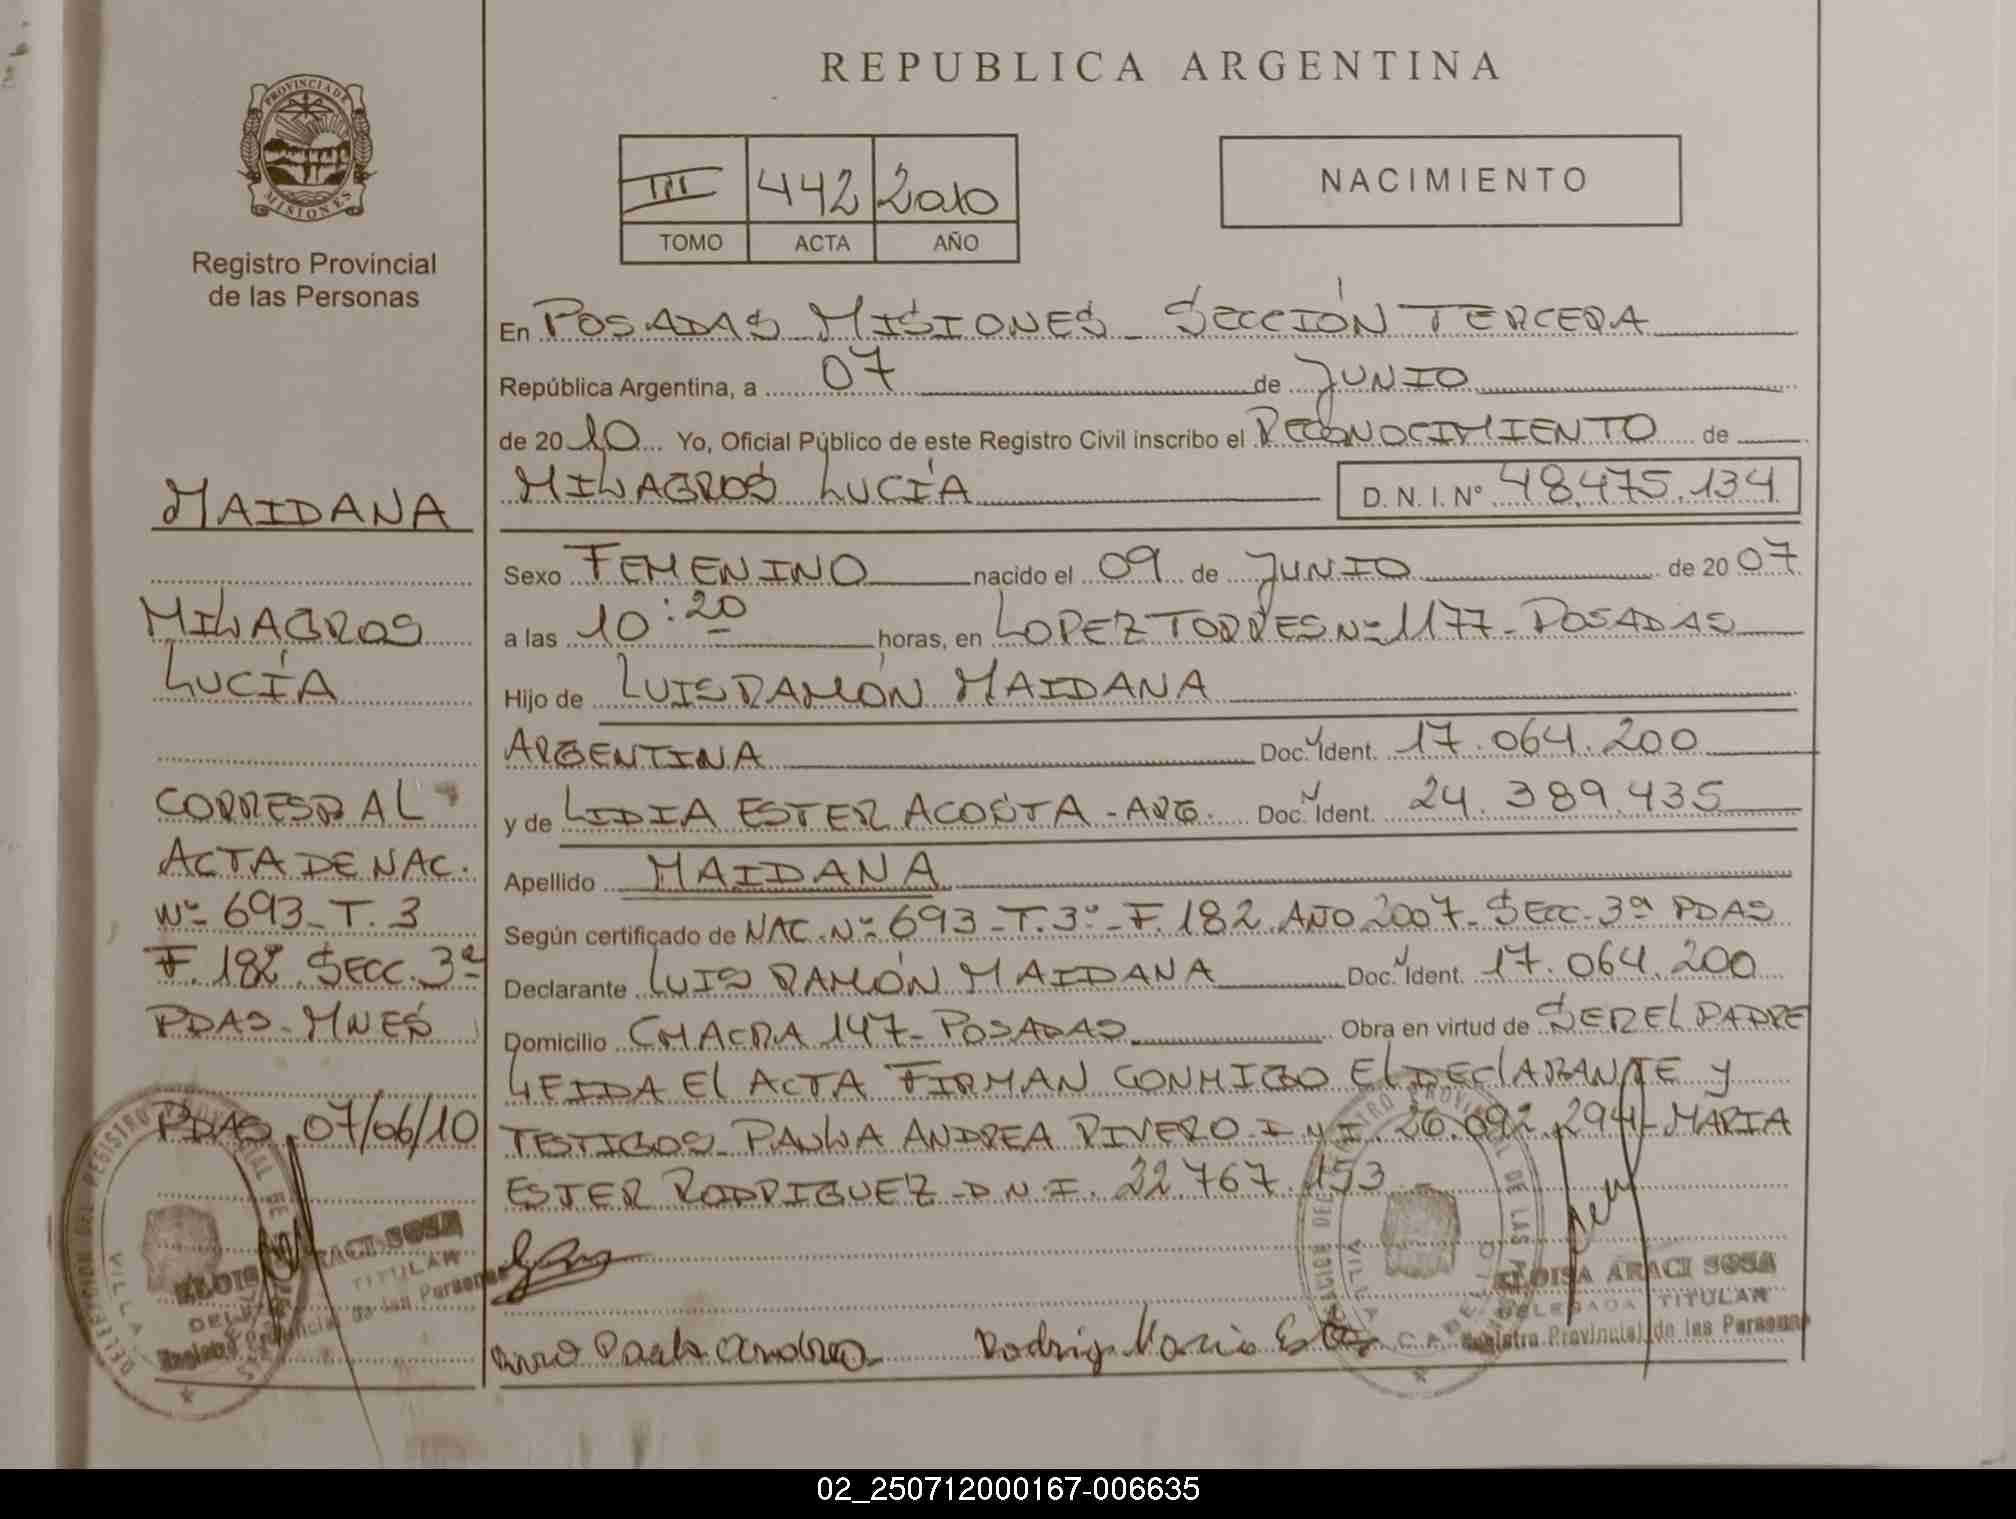 REPUBLICA ARGENTINA
PROVINCIA DE
MISIONES
Registro Provincial
de las Personas
III 442 2010
TOMO ACTA AÑO
NACIMIENTO
MAIDANA
MILAGROS
LUCÍA
CORRESP AL
ACTA DE NAC.
Nº 693-T.3
F.182. SECC. 3ª
PDAS-MNES
PDAS 07/06/10
En POSADAS MISIONES - SECCIÓN TERCERA
República Argentina, a 07 de JUNIO
de 2010 Yo, Oficial Público de este Registro Civil inscribo el RECONOCIMIENTO de
MILAGROS LUCÍA D. N. I. Nº 48.475.134
Sexo FEMENINO nacido el 09 de JUNIO de 2007
a las 10:20 horas, en LOPEZ TORRES Nº 1177-POSADAS
Hijo de LUIS RAMÓN MAIDANA
ARGENTINA Doc. Ident. 17.064.200
y de LIDIA ESTER ACOSTA - ARG. Doc. Ident. 24.389.435
Apellido MAIDANA
Según certificado de NAC. Nº 693-T.3º-F.182 AÑO 2007-SECC-3ª PDAS
Declarante LUIS RAMÓN MAIDANA Doc. Ident. 17.064.200
Domicilio CHACRA 147-POSADAS Obra en virtud de SER EL PADRE
LEIDA EL ACTA FIRMAN CONMIGO EL DECLARANTE y
TESTIGOS-PAULA ANDREA RIVERO D.N.I. 26.092.294-MARIA
ESTER RODRIGUEZ-D.N.I. 22.767.153
Paula Andrea
Rodrig Maria Ester
ELOISA ARACI SOSA
DELEGADA TITULAR
Registro Provincial de las Personas
ARACI SOSA
TITULAR
de las Personas
02_250712000167-006635